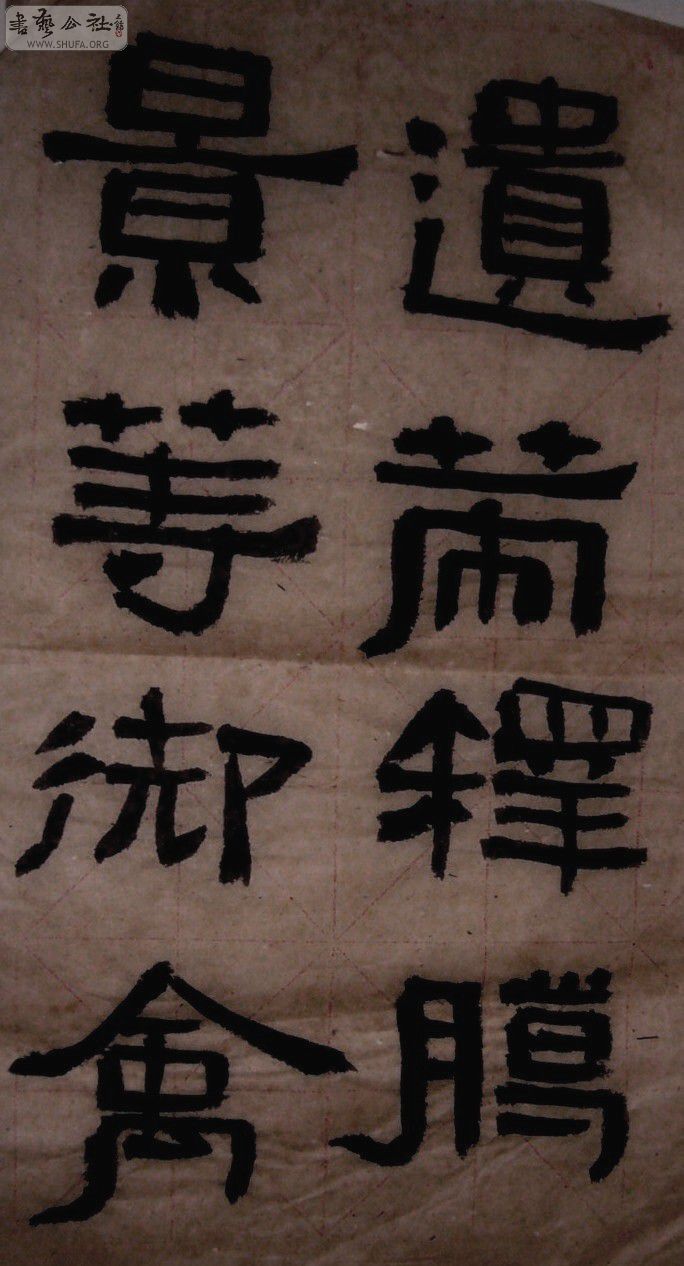 書藝公社
WWW.SHUFA.ORG
遺芾釋
景等御禽